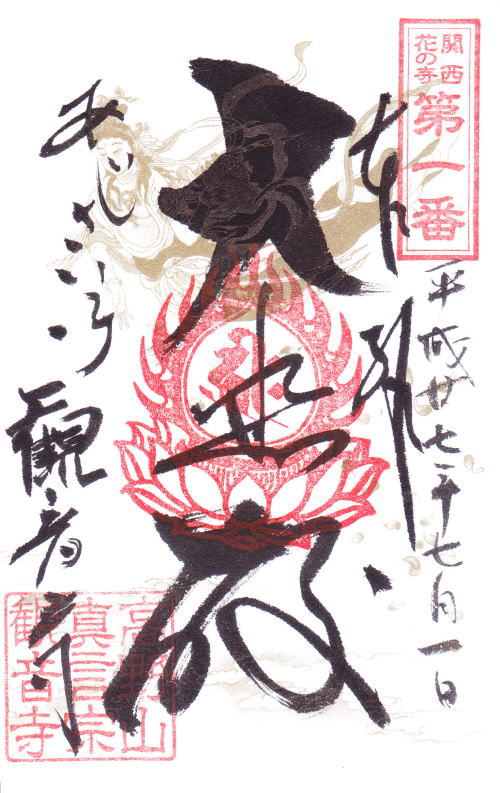 関西
花の寺
第一番
奉拝
平成廿七年七月一日
大悲殿
観音寺
高野山
真言宗
観音寺